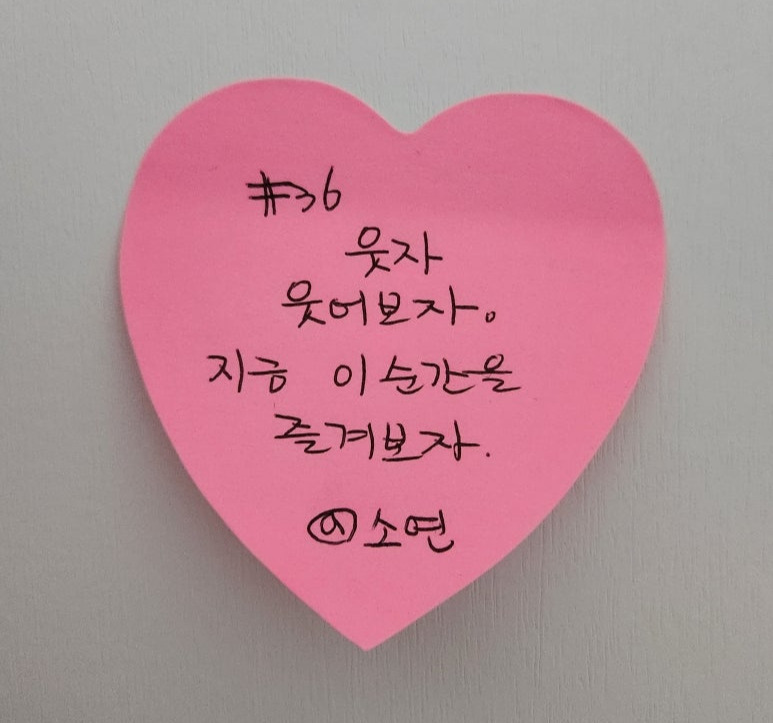 #36
웃자
웃어보자。
지금 이 순간을
즐겨보자.
@소연